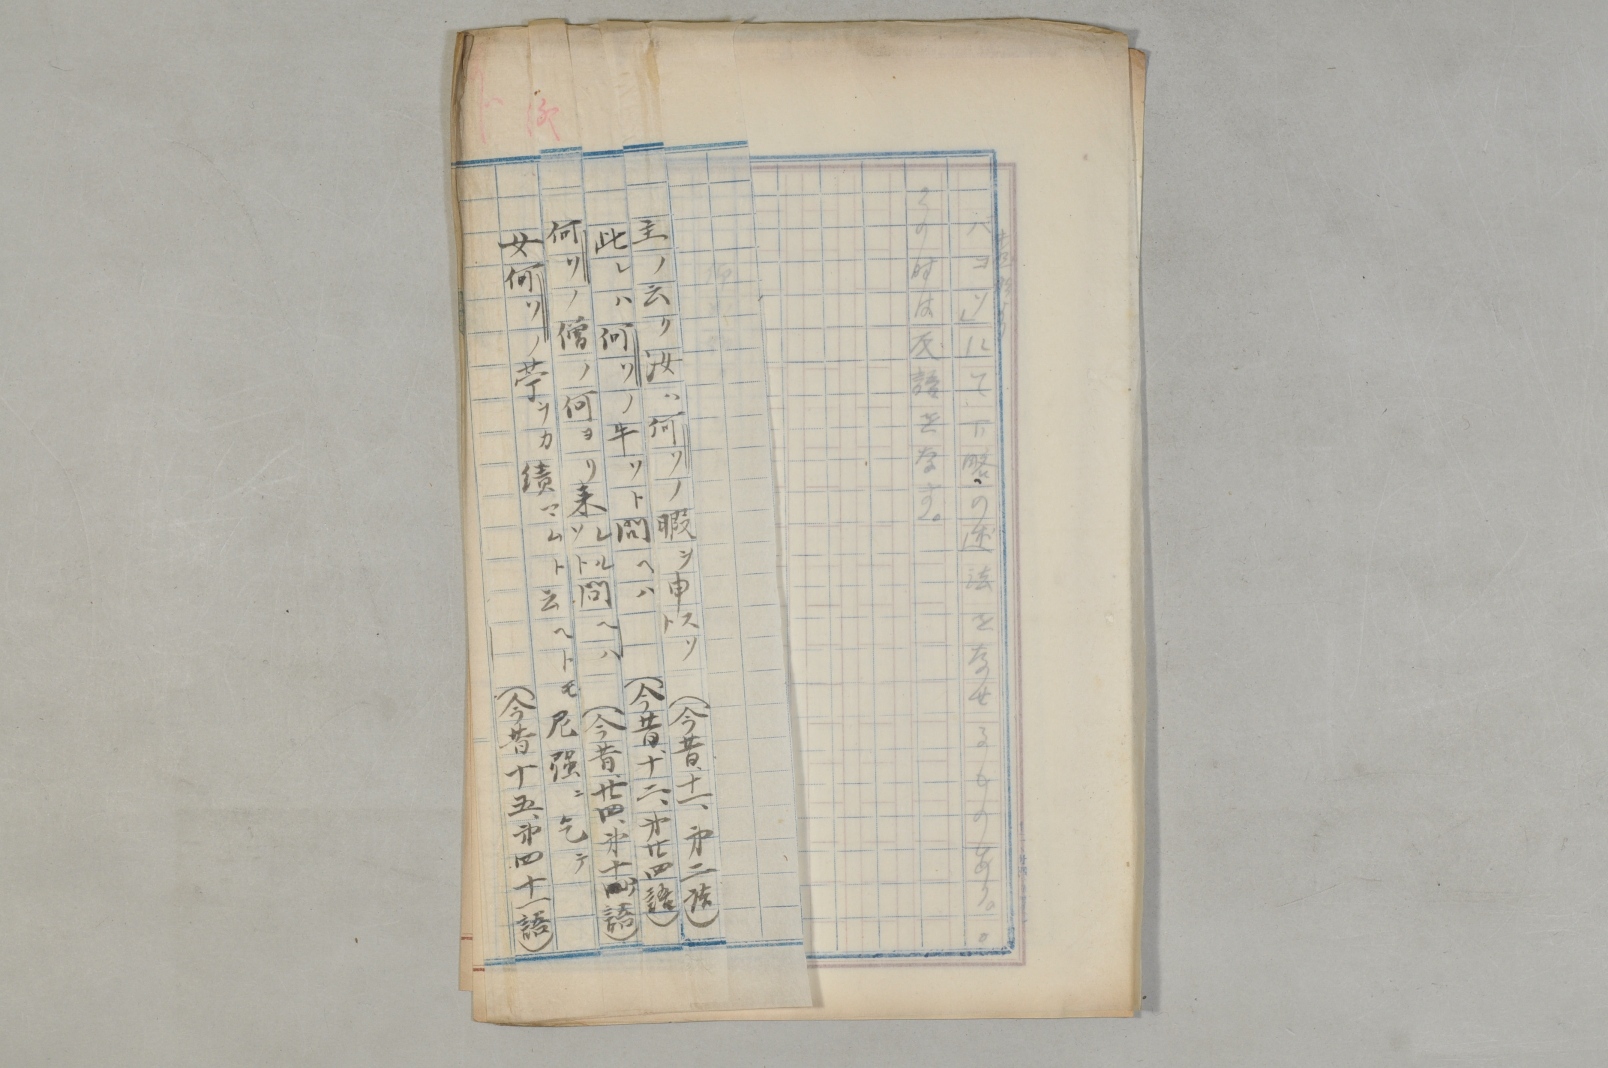 バヨソ」にて、下略の述法をなせるものあり。
この時は反語をなす。
主ノ云ク汝ハ何ソノ暇ヲ申スソト (今昔、十一、第二話)
此レハ何ソノ牛ソト問ヘハ (今昔、十二、第廿四語)
何ソノ僧ノ何ヨリ来レルソト問ヘハ (今昔、廿四、第十四語)
女何ソノ苧ヲカ績マムト云ヘトモ尼強ニ乞テ (今昔十五、第四十一語)